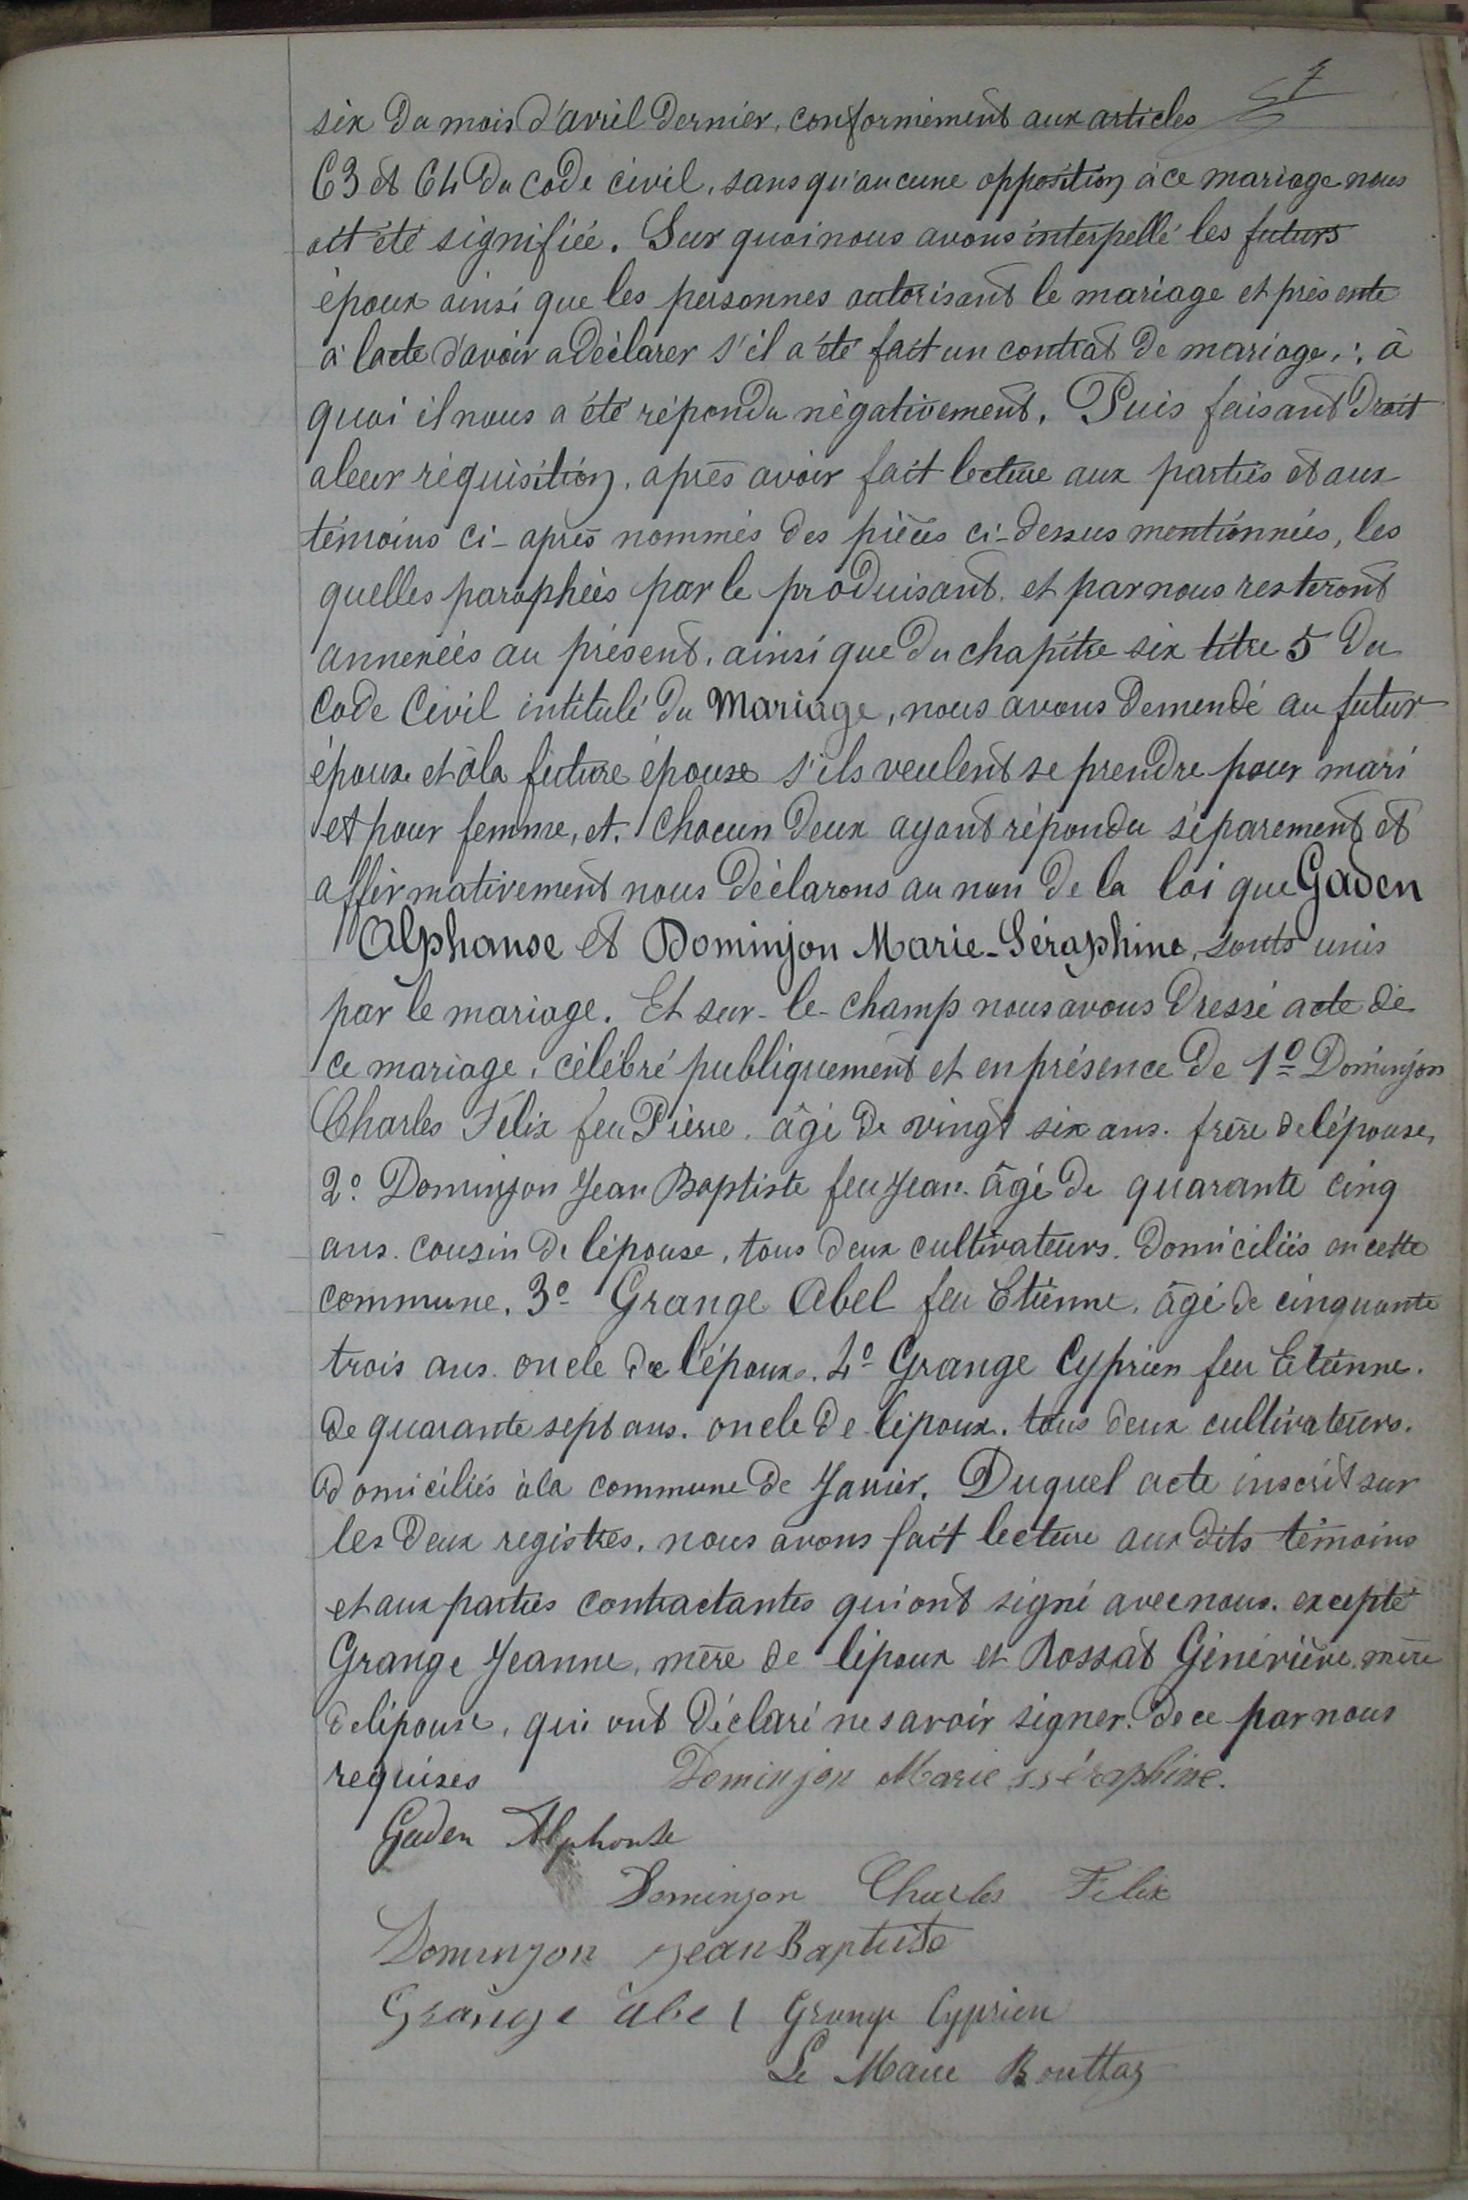 7
six du mois d'avril dernier, conformément aux articles
63 et 64 du code civil, sans qu'aucune opposition à ce mariage nous
ait été signifiée. Sur quoi nous avons interpellé les futurs
époux ainsi que les personnes autorisant le mariage et présente
à lacte d'avoir a déclarer s'il a été fait un contrat de mariage, : à
quoi il nous a été répondu négativement. Puis faisant droit
a leur réquisition, après avoir fait lecture aux parties et aux
témoins ci-après nommés des pièces ci-dessus mentionnées, les
quelles paraphées par le produisant et par nous resteront
annexées au présent, ainsi que du chapitre six titre 5 du
Code Civil intitulé du Mariage, nous avons demendé au futur
époux et à la future épouse s'ils veulent se prendre pour mari
et pour femme, et. chacun deux ayant répondu séparement et
affirmativement nous déclarons au nom de la loi que Gaden
Alphonse et Dominjon Marie-Séraphine, sonts unis
par le mariage. Et sur-le-champ nous avons dressé acte de
ce mariage, célébré publiquement et en présence de 1º Dominjon
Charles Félix feu Pierre, âgé de vingt six ans. frère de lépouse,
2º Dominjon Jean Baptiste feu Jean. âgé de quarante cinq
ans. cousin de lépouse, tous deux cultivateurs. domiciliés en cette
commune. 3º Grange Abel feu Etienne, âgé de cinquante
trois ans. oncle de l'époux. 4º Grange Cyprien feu Etienne.
de quarante sept ans. oncle de lépoux. tous deux cultivateurs.
domiciliés à la commune de Jarrier. Duquel acte inscrit sur
les deux registres, nous avons fait lecture aux dits témoins
et aux parties contractantes qui ont signé avec nous. excepté
Grange Jeanne, mère de lépoux et Rossat Généviève mère
de lépouse, qui ont déclaré ne savoir signer. de ce par nous
requises Dominjon Marie Séraphine.
Gaden Alphonse
Dominjon Charles Félix
Dominjon Jean Baptiste
Grange abel Grange Cyprien
Le Maire Bouttaz